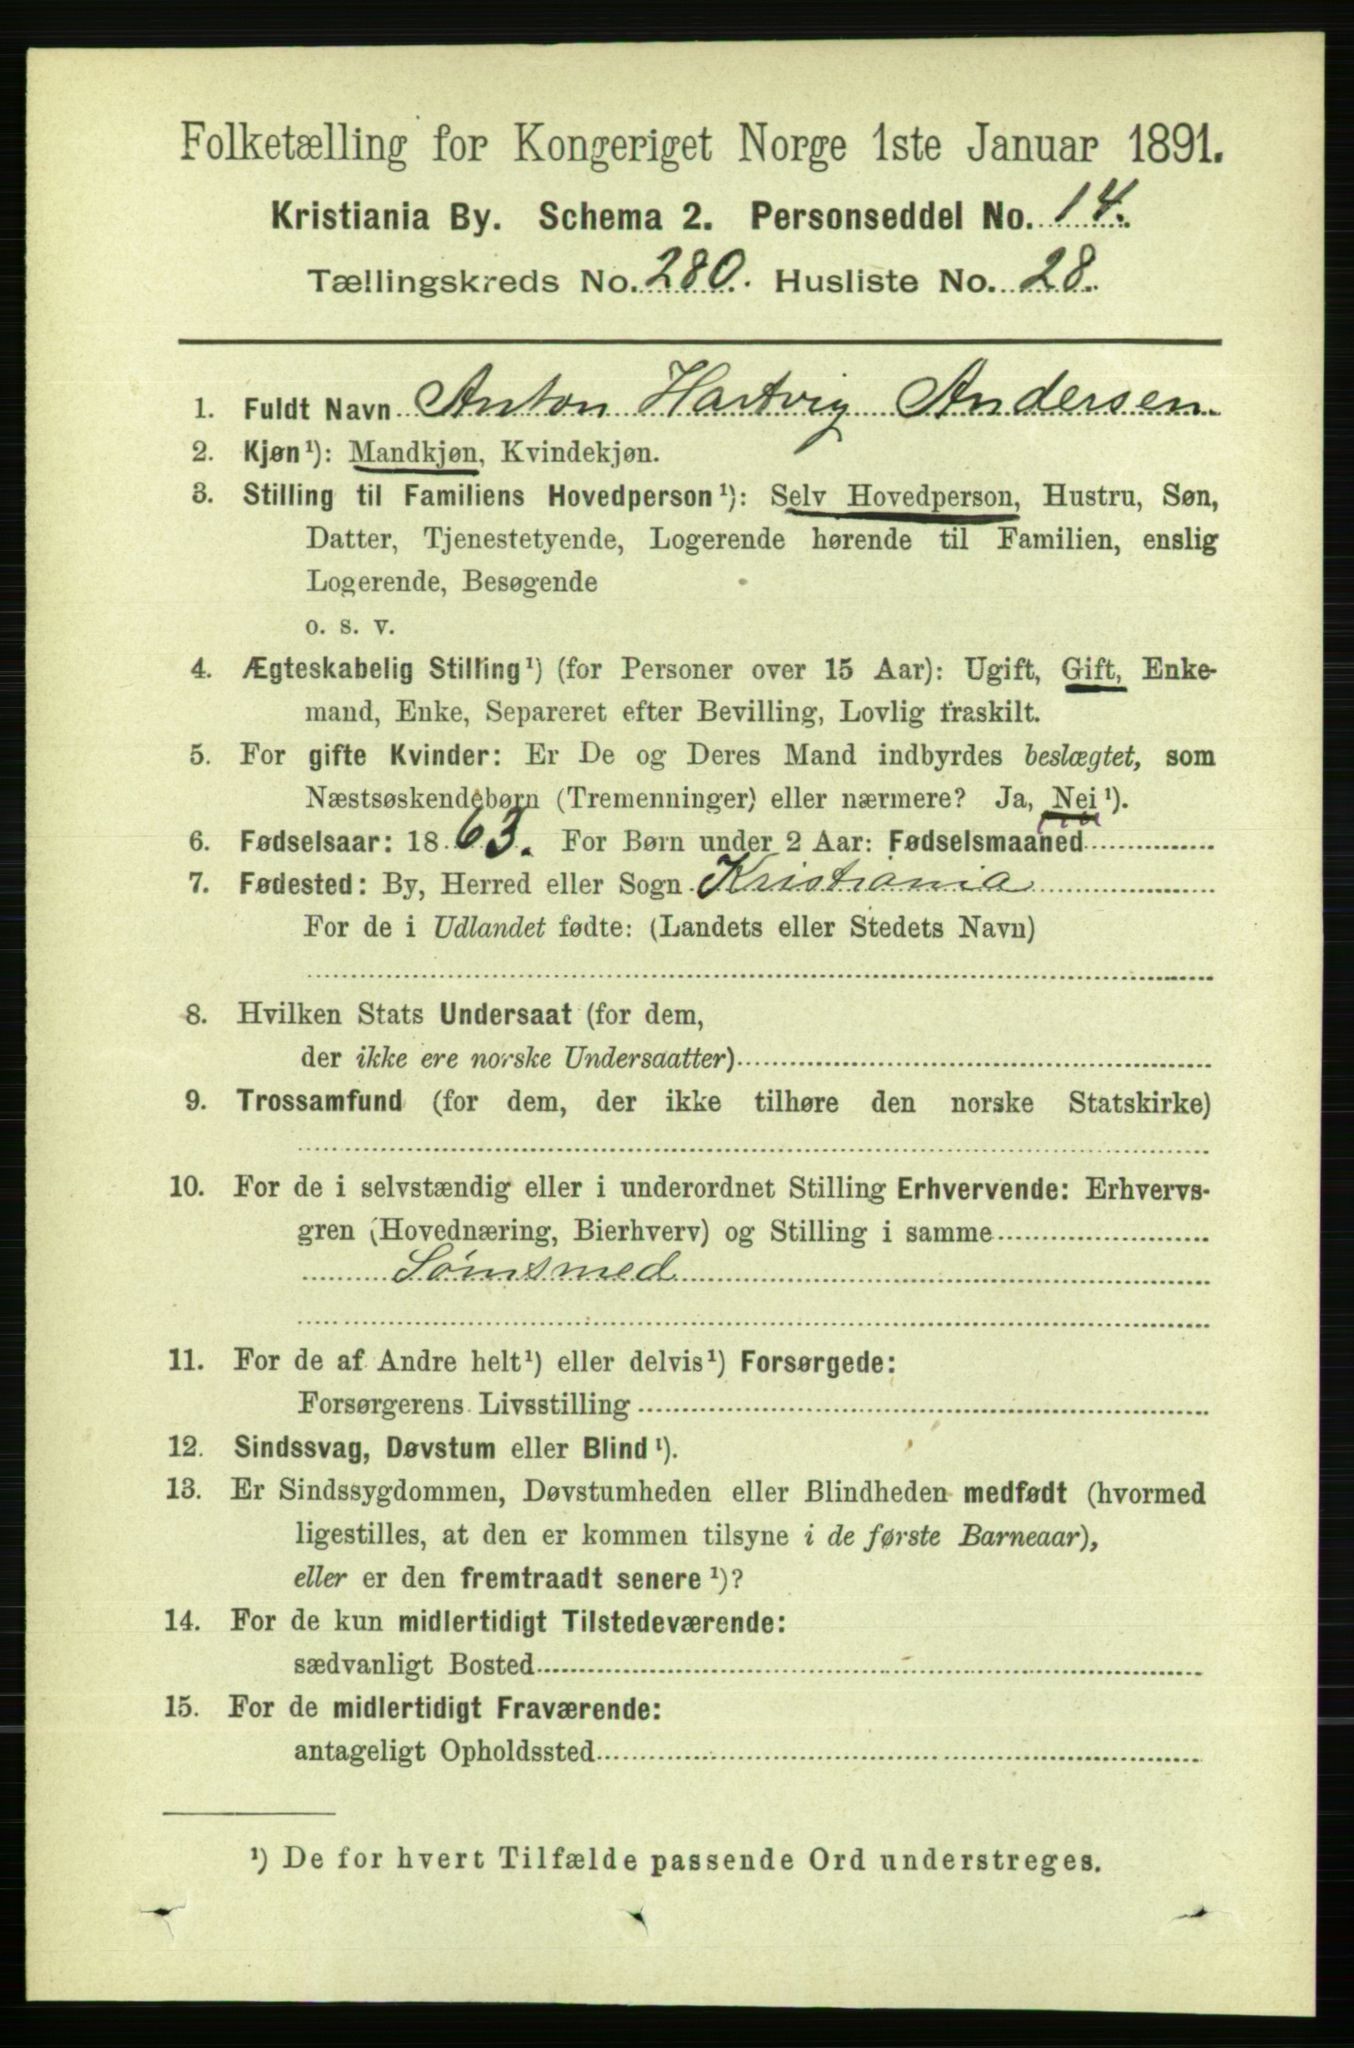 Folketælling for Kongeriget Norge 1ste Januar 1891.
Kristiania By. Schema 2. Personseddel No. 14.
Tællingskreds No. 280. Husliste No. 28.
1. Fuldt Navn Anton Hartvig Andersen.
2. Kjøn¹): Mandkjøn, Kvindekjøn.
3. Stilling til Familiens Hovedperson¹): Selv Hovedperson, Hustru, Søn,
Datter, Tjenestetyende, Logerende hørende til Familien, enslig
Logerende, Besøgende
o. s. v.
4. Ægteskabelig Stilling¹) (for Personer over 15 Aar): Ugift, Gift, Enke-
mand, Enke, Separeret efter Bevilling, Lovlig fraskilt.
5. For gifte Kvinder: Er De og Deres Mand indbyrdes beslægtet, som
Næstsøskendebørn (Tremenninger) eller nærmere? Ja, Nei¹).
6. Fødselsaar: 1863. For Børn under 2 Aar: Fødselsmaaned
7. Fødested: By, Herred eller Sogn Kristiania
For de i Udlandet fødte: (Landets eller Stedets Navn)
8. Hvilken Stats Undersaat (for dem,
der ikke ere norske Undersaatter)
9. Trossamfund (for dem, der ikke tilhøre den norske Statskirke)
10. For de i selvstændig eller i underordnet Stilling Erhvervende: Erhvervs-
gren (Hovednæring, Bierhverv) og Stilling i samme
Sømsmed
11. For de af Andre helt¹) eller delvis¹) Forsørgede:
Forsørgerens Livsstilling
12. Sindssvag, Døvstum eller Blind¹).
13. Er Sindssygdommen, Døvstumheden eller Blindheden medfødt (hvormed
ligestilles, at den er kommen tilsyne i de første Barneaar),
eller er den fremtraadt senere¹)?
14. For de kun midlertidigt Tilstedeværende:
sædvanligt Bosted
15. For de midlertidigt Fraværende:
antageligt Opholdssted
¹) De for hvert Tilfælde passende Ord understreges.